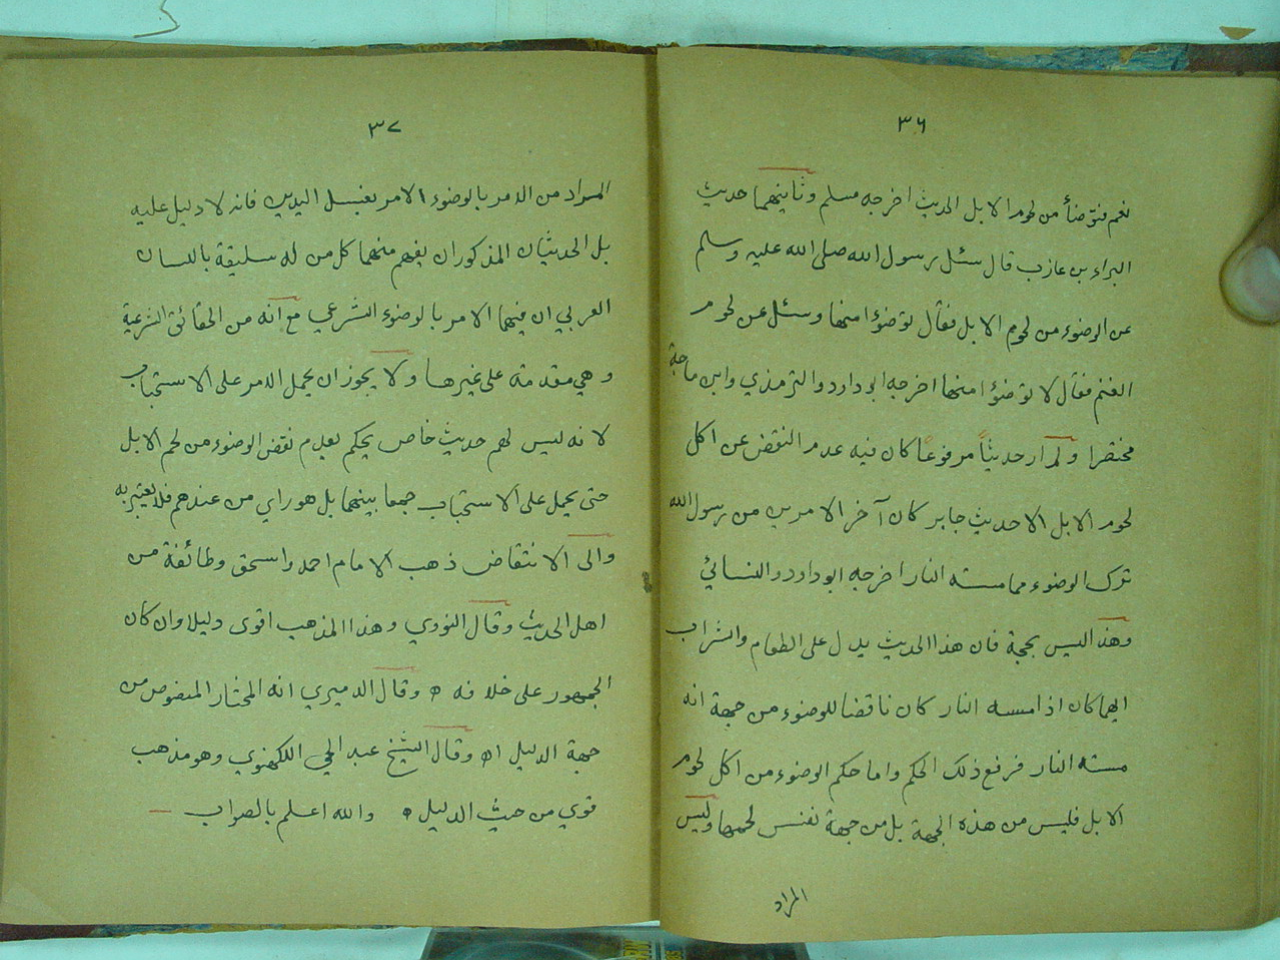 ٣٦
نعم فتوضأ من لحوم الابل الحديث اخرجه مسلم وثانيهما حديث
البراء بن عازب قال سئل رسول الله صلى الله عليه وسلم
عن الوضوء من لحوم الابل فقال توضؤا منها وسئل عن لحوم
الغنم فقال لا توضؤا منها اخرجه ابوداود والترمذي وابن ماجة
مختصرا ولم ار حديثاً مرفوعاً كان فيه عدم النقض عن اكل
لحوم الابل الا حديث جابر كان آخر الامرين من رسول الله
ترك الوضوء مما مسته النار اخرجه ابوداود والنسائي
وهذا ليس بحجة فان هذا الحديث يدل على الطعام والشراب
ايهما كان اذا مسه النار كان ناقضا للوضوء من جهة انه
مسته النار فرفع ذلك الحكم واما حكم الوضوء من اكل لحوم
الابل فليس من هذه الجهة بل من جهة نفس لحمها وليس
المراد
٣٧
المراد من الامر بالوضوء الامر بغسل اليدين فانه لا دليل عليه
بل الحديثان المذكوران يفهم منهما كل من له سليقة باللسان
العربي ان فيهما الامر بالوضوء الشرعي مع انه من الحقائق الشرعية
وهي مقدمة على غيرها ولا يجوز ان يحمل الامر على الاستحباب
لانه ليس لهم حديث خاص يحكم بعدم نقض الوضوء من لحم الابل
حتى يحمل على الاستحباب جمعا بينهما بل هو راي من عندهم فلا يعتبر به
والى الانتقاض ذهب الامام احمد واسحق وطائفة من
اهل الحديث وقال النووي وهذا المذهب اقوى دليلا وان كان
الجمهور على خلافه ه وقال الدميري انه المختار المنصوص من
جهة الدليل اه وقال الشيخ عبد الحي اللكهنوي وهو مذهب
قوي من حيث الدليل ه والله اعلم بالصواب